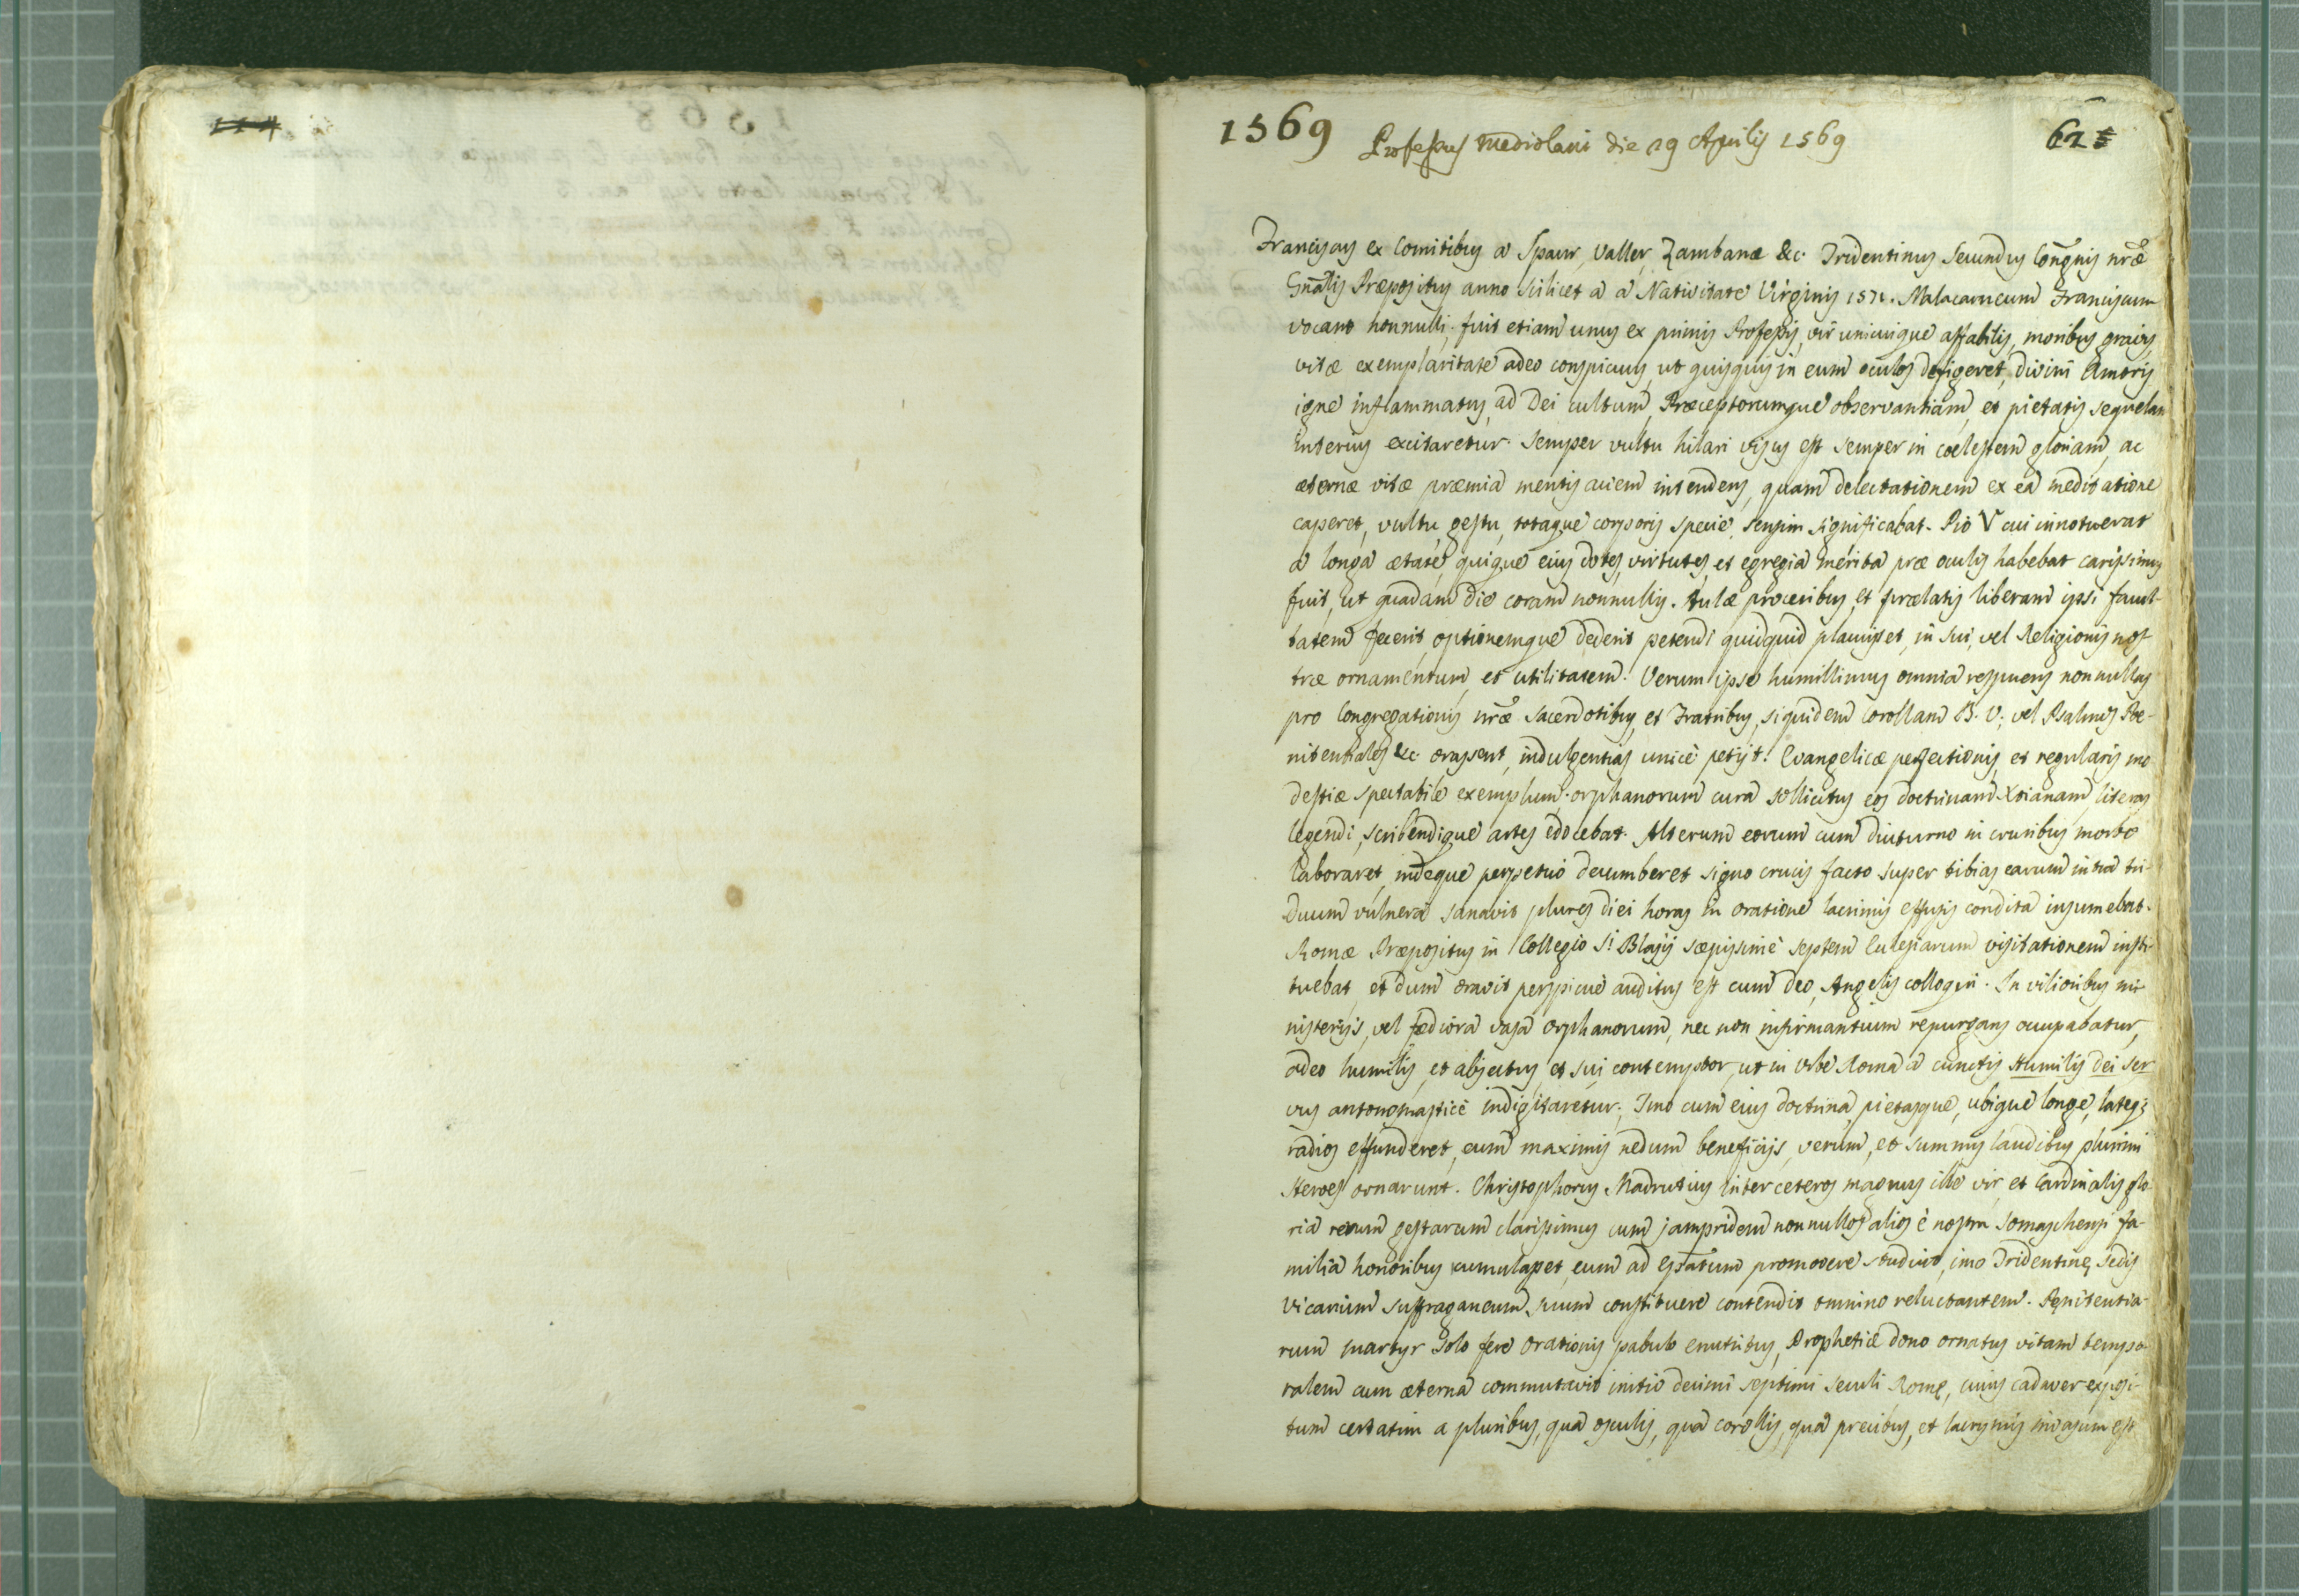 1569 Professus Mediolani die 29 Aprilis 1569 62
Franciscus ex Comitibus a Spaur, Valler, Zambanæ &c. Tridentinus Secundus Congnis nræ
Gnalis Præpositus anno scilicet a a Nativitate Virginis 1571. Malacarneum Franciscum
vocant nonnulli; fuit etiam unus ex primis Professis, vir unicuique affabilis, moribus gravis,
vitæ exemplaritate adeo conspicuus, ut quisquis in eum oculos defigeret, divini Amoris
igne inflammatus, ad Dei cultum, Præceptorumque observantiam, et pietatis sequelam
interius excitaretur. Semper vultu hilari visus est semper in coelestem gloriam, ac
æternæ vitæ præmia mentis aciem intendens, quam delectationem ex ea meditatione
caperet, vultu, gestu, totaque corporis specie, sensim significabat. Pio V cui innotuerat
a longa ætate, quique eius dotes, virtutes, et egregia merita præ oculis habebat carissimus
fuit, ut quadam die coram nonnullis. Aulæ proceribus, et prælatis liberam ipsi facul-
tatem fecerit, optionemque dederit petendi quidquid placuisset, in sui, vel Religionis nos-
træ ornamentum, et utilitatem. Verum ipse humillimus omnia respuens nonnullas
pro Congregationis nræ Sacerdotibus, et Fratribus, siquidem Corollam B. V; vel Psalmos Poe-
nitentiales &c. orassent, indulgentias unicè petijt. Evangelicæ perfectionis, et regularis mo
destiæ spectabile exemplum. orphanorum cura sollicitus eos doctrinam Xtianam, literas
legendi, scribendique artes edocebat. Alterum eorum cum diuturno in cruribus morbo
laboraret, indeque perpetuo decumberet signo crucis facto super tibias earum intra tri-
duum vulnera sanavit plures diei horas in oratione lacrimis effusis condita insumebat.
Romæ Præpositus in Collegio Sti Blasij sæpissimè septem Ecclesiarum visitationem insti-
tuebat, et dum oravit perspicuè auditus est cum Deo, Angelis colloqui. In vilioribus mi-
nisterijs, vel fædiora vasa orphanorum, nec non infirmantium repurgans occupabatur,
adeo humilis, et abjectus, et sui contemptor, ut in Urbe Roma a cunctis Humilis Dei Ser
vus antonomasticè indigitaretur. Imo cum eius doctrina, pietasque, ubique longe, lateq;
radios effunderet, eum maximis nedum beneficijs, verum, et summis laudibus plurimi
Heroes ornarunt. Christophorus Madrutius inter ceteros magnus ille vir, et Cardinalis glo
ria rerum gestarum clarissimus cum jampridem nonnullos alios è nostra Somaschensi fa-
milia honoribus cumulasset, eum ad Epatum promovere studuit, imo Tridentinę Sedis
Vicarium Suffraganeum suum constituere contendit omnino reluctantem. Pęnitentia-
rum martyr solo fere orationis pabulo enutritus, Prophetiæ dono ornatus vitam tempo-
ralem cum æterna commutavit initio decimi septimi seculi Romę, cuius cadaver exposi-
tum certatim a pluribus, qua osculis, qua corollis, qua precibus, et lacrymis invasum est